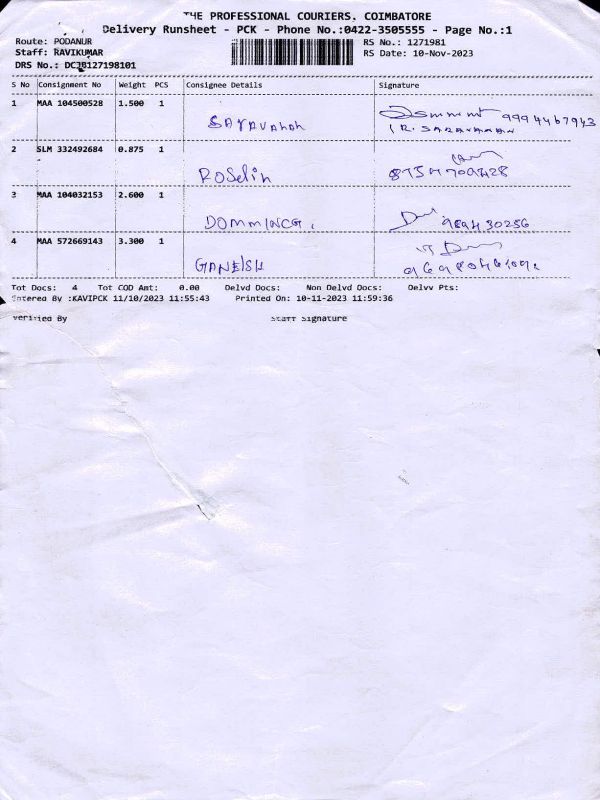 THE PROFESSIONAL COURIERS, COIMBATORE
Delivery Runsheet - PCK - Phone No.:0422-3505555 - Page No.:1
Route: PODANUR RS No.: 1271981
Staff: RAVIKUMAR RS Date: 10-Nov-2023
DRS No.:
S No Consignment No Weight PCS Consignee Details Signature
1 MAA 104500528 1.500 1 Saravanan 9994467943
(R. SARAVANAN
2 SLM 332492684 0.875 1 Roselin 8754709428
3 MAA 104032153 2.600 1 9894430256
4 MAA 572669143 3.300 1 GANESH
Tot Docs: 4 Tot COD Amt: 0.00 Delvd Docs: Non Delvd Docs: Delvv Pts:
Entered By :KAVIPCK 11/10/2023 11:55:43 Printed On: 10-11-2023 11:59:36
Verified By Staff Signature